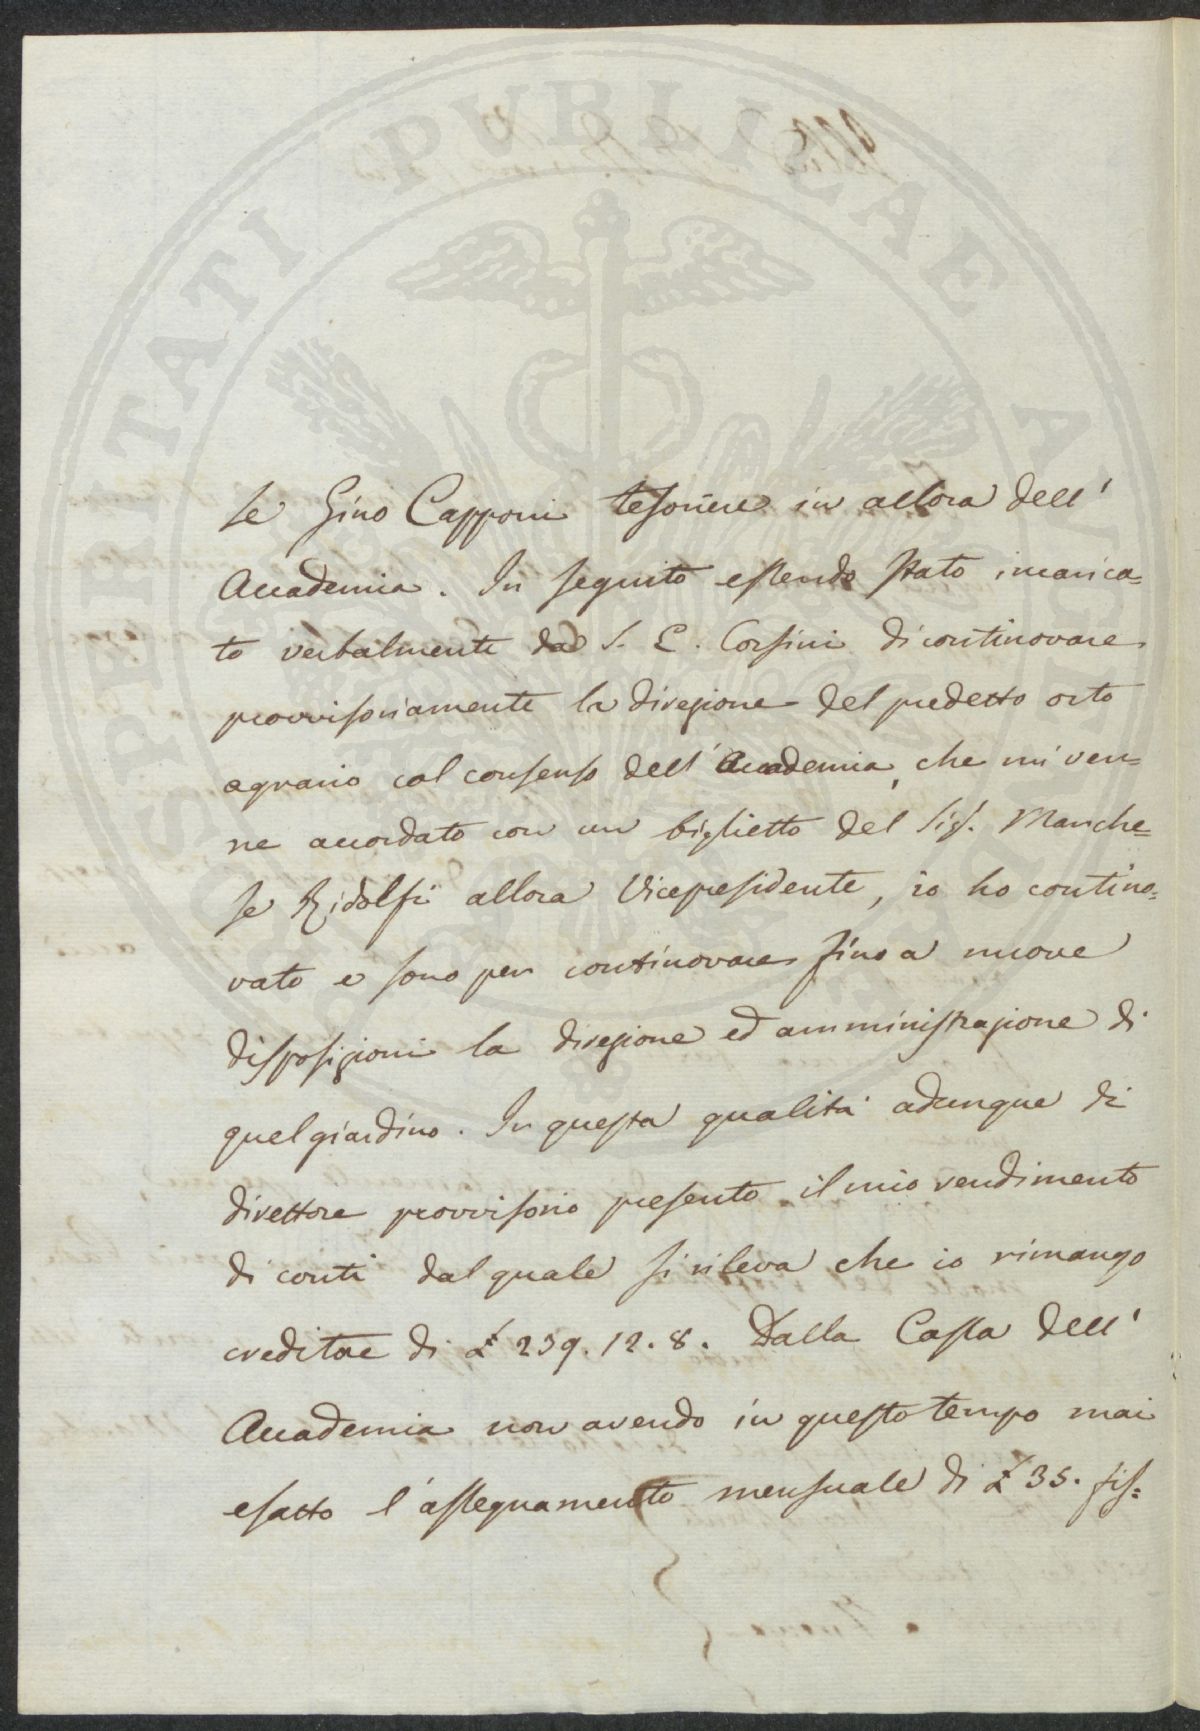 PROSPERITATI PUBLICAE AUGENDAE
se Gino Capponi tesoriere in allora dell'
Accademia. In seguito essendo stato incarica=
to verbalmente da S. E. Corsini di continovare
provvisoriamente la direzione del predetto orto
agrario col consenso dell'Accademia, che mi ven=
ne accordato con un biglietto del Sig. Marche=
se Ridolfi allora Vicepresidente, io ho contino=
vato e sono per continovare fino a nuove
disposizioni la direzione ed amministrazione di
quel giardino. In questa qualità adunque di
direttore provvisorio presento il mio rendimento
di conti dal quale si rileva che io rimango
creditore di £ 239. 12. 8. Dalla Cassa dell'
Accademia non avendo in questo tempo mai
esatto l'assegnamento mensuale di £ 35. fis=